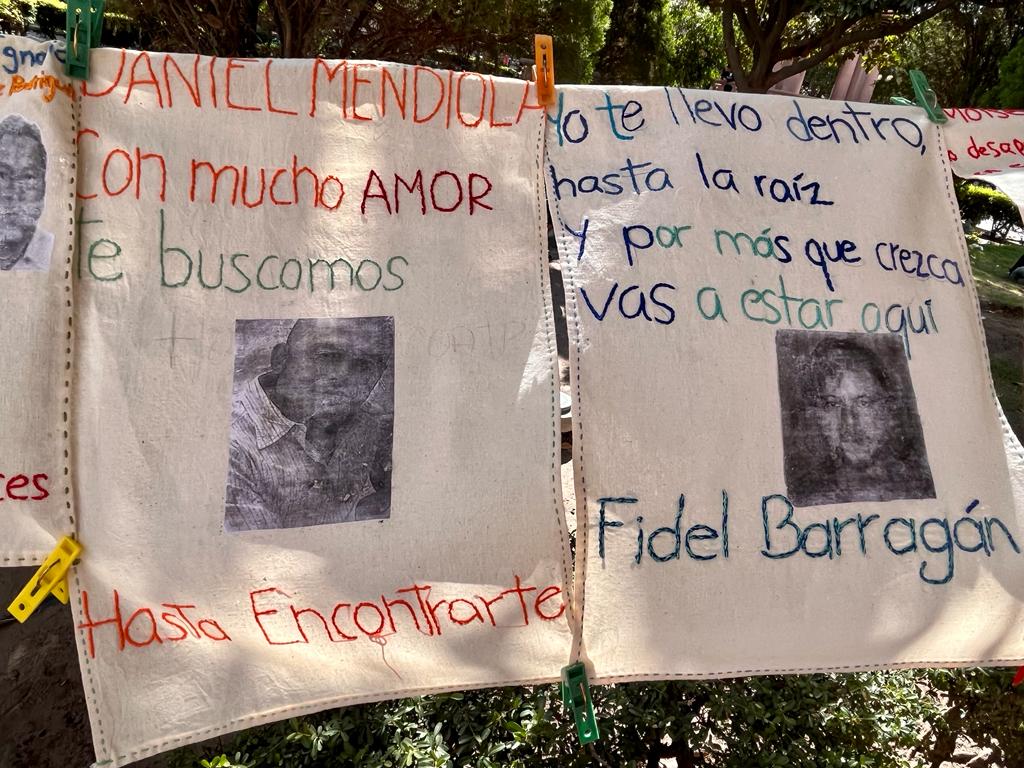 DANIEL MENDIOLA
Con mucho AMOR
te buscamos
Hasta Encontrarte
Yo te llevo dentro,
hasta la raíz
y por más que crezca
vas a estar aquí
Fidel Barragán